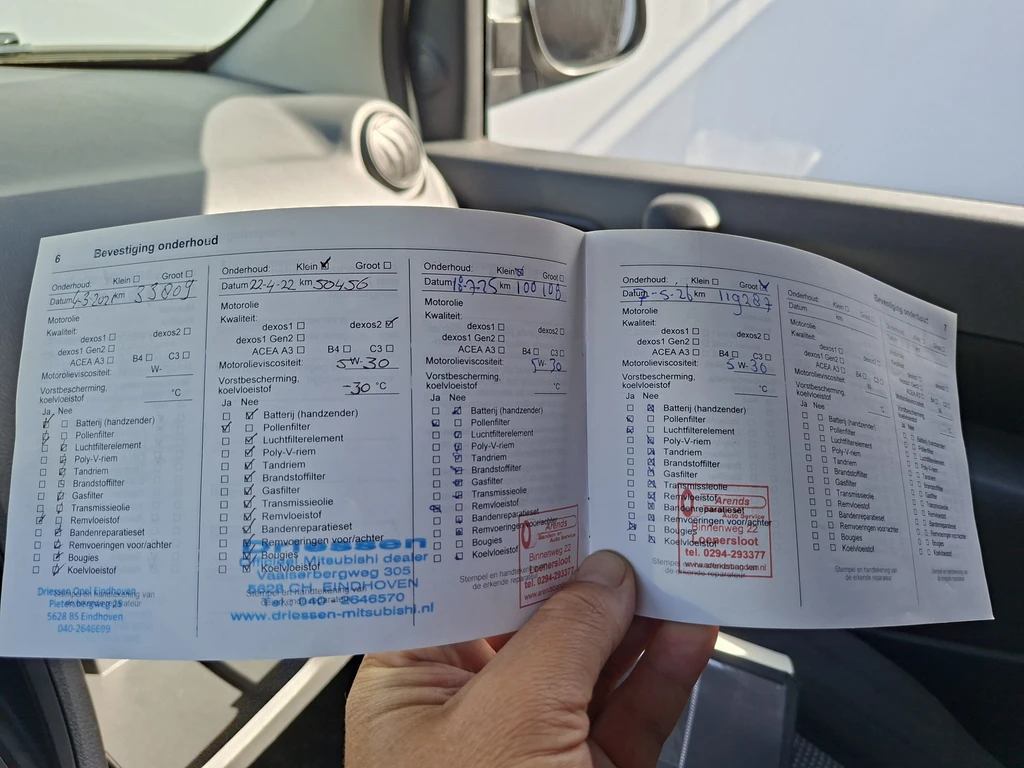 6
Bevestiging onderhoud
Onderhoud: Klein Groot
Datum 4-3-2021 km 33809
Motorolie
Kwaliteit:
dexos1 dexos2
dexos1 Gen2
ACEA A3 B4 C3
Motorolieviscositeit: W-
Vorstbescherming,
koelvloeistof °C
Ja Nee
Batterij (handzender)
Pollenfilter
Luchtfilterelement
Poly-V-riem
Tandriem
Brandstoffilter
Gasfilter
Transmissieolie
Remvloeistof
Bandenreparatieset
Remvoeringen voor/achter
Bougies
Koelvloeistof
Driessen Opel Eindhoven
Pietersbergweg 25
5628 BS Eindhoven
040-2646699
Onderhoud: Klein Groot
Datum 22-4-22 km 50456
Motorolie
Kwaliteit:
dexos1 dexos2
dexos1 Gen2
ACEA A3 B4 C3
Motorolieviscositeit: 5W-30
Vorstbescherming,
koelvloeistof -30 °C
Ja Nee
Batterij (handzender)
Pollenfilter
Luchtfilterelement
Poly-V-riem
Tandriem
Brandstoffilter
Gasfilter
Transmissieolie
Remvloeistof
Bandenreparatieset
Remvoeringen voor/achter
Bougies
Koelvloeistof
Driessen
Officieel Mitsubishi dealer
Vaalserbergweg 305
5628 CH EINDHOVEN
Tel. 040 - 2646570
www.driessen-mitsubishi.nl
Onderhoud: Klein Groot
Datum 18-7-25 km 100108
Motorolie
Kwaliteit:
dexos1 dexos2
dexos1 Gen2
ACEA A3 B4 C3
Motorolieviscositeit: 5W-30
Vorstbescherming,
koelvloeistof °C
Ja Nee
Batterij (handzender)
Pollenfilter
Luchtfilterelement
Poly-V-riem
Tandriem
Brandstoffilter
Gasfilter
Transmissieolie
Remvloeistof
Bandenreparatieset
Remvoeringen voor/achter
Bougies
Koelvloeistof
Stempel en handtekening van
de erkende reparateur
Arends
Banden en
Auto Service
Binnenweg 22
Loenersloot
tel. 0294-293377
Onderhoud: Klein Groot
Datum 7-5-26 km 119287
Motorolie
Kwaliteit:
dexos1 dexos2
dexos1 Gen2
ACEA A3 B4 C3
Motorolieviscositeit: 5W-30
Vorstbescherming,
koelvloeistof °C
Ja Nee
Batterij (handzender)
Pollenfilter
Luchtfilterelement
Poly-V-riem
Tandriem
Brandstoffilter
Gasfilter
Transmissieolie
Remvloeistof
Bandenreparatieset
Remvoeringen voor/achter
Bougies
Koelvloeistof
Arends
Auto Service
Binnenweg 22
Loenersloot
tel. 0294-293377
www.arendsbanden.nl
Bevestiging onderhoud 7
Onderhoud: Klein Groot
Datum km
Motorolie
Kwaliteit:
dexos1 dexos2
dexos1 Gen2
ACEA A3 B4 C3
Motorolieviscositeit:
Vorstbescherming,
koelvloeistof °C
Ja Nee
Batterij (handzender)
Pollenfilter
Luchtfilterelement
Poly-V-riem
Tandriem
Brandstoffilter
Gasfilter
Transmissieolie
Remvloeistof
Bandenreparatieset
Remvoeringen voor/achter
Bougies
Koelvloeistof
Stempel en handtekening van
de erkende reparateur
Ja Nee
Batterij (handzender)
Pollenfilter
Luchtfilterelement
Poly-V-riem
Tandriem
Brandstoffilter
Gasfilter
Transmissieolie
Remvloeistof
Bandenreparatieset
Remvoeringen voor/achter
Bougies
Koelvloeistof